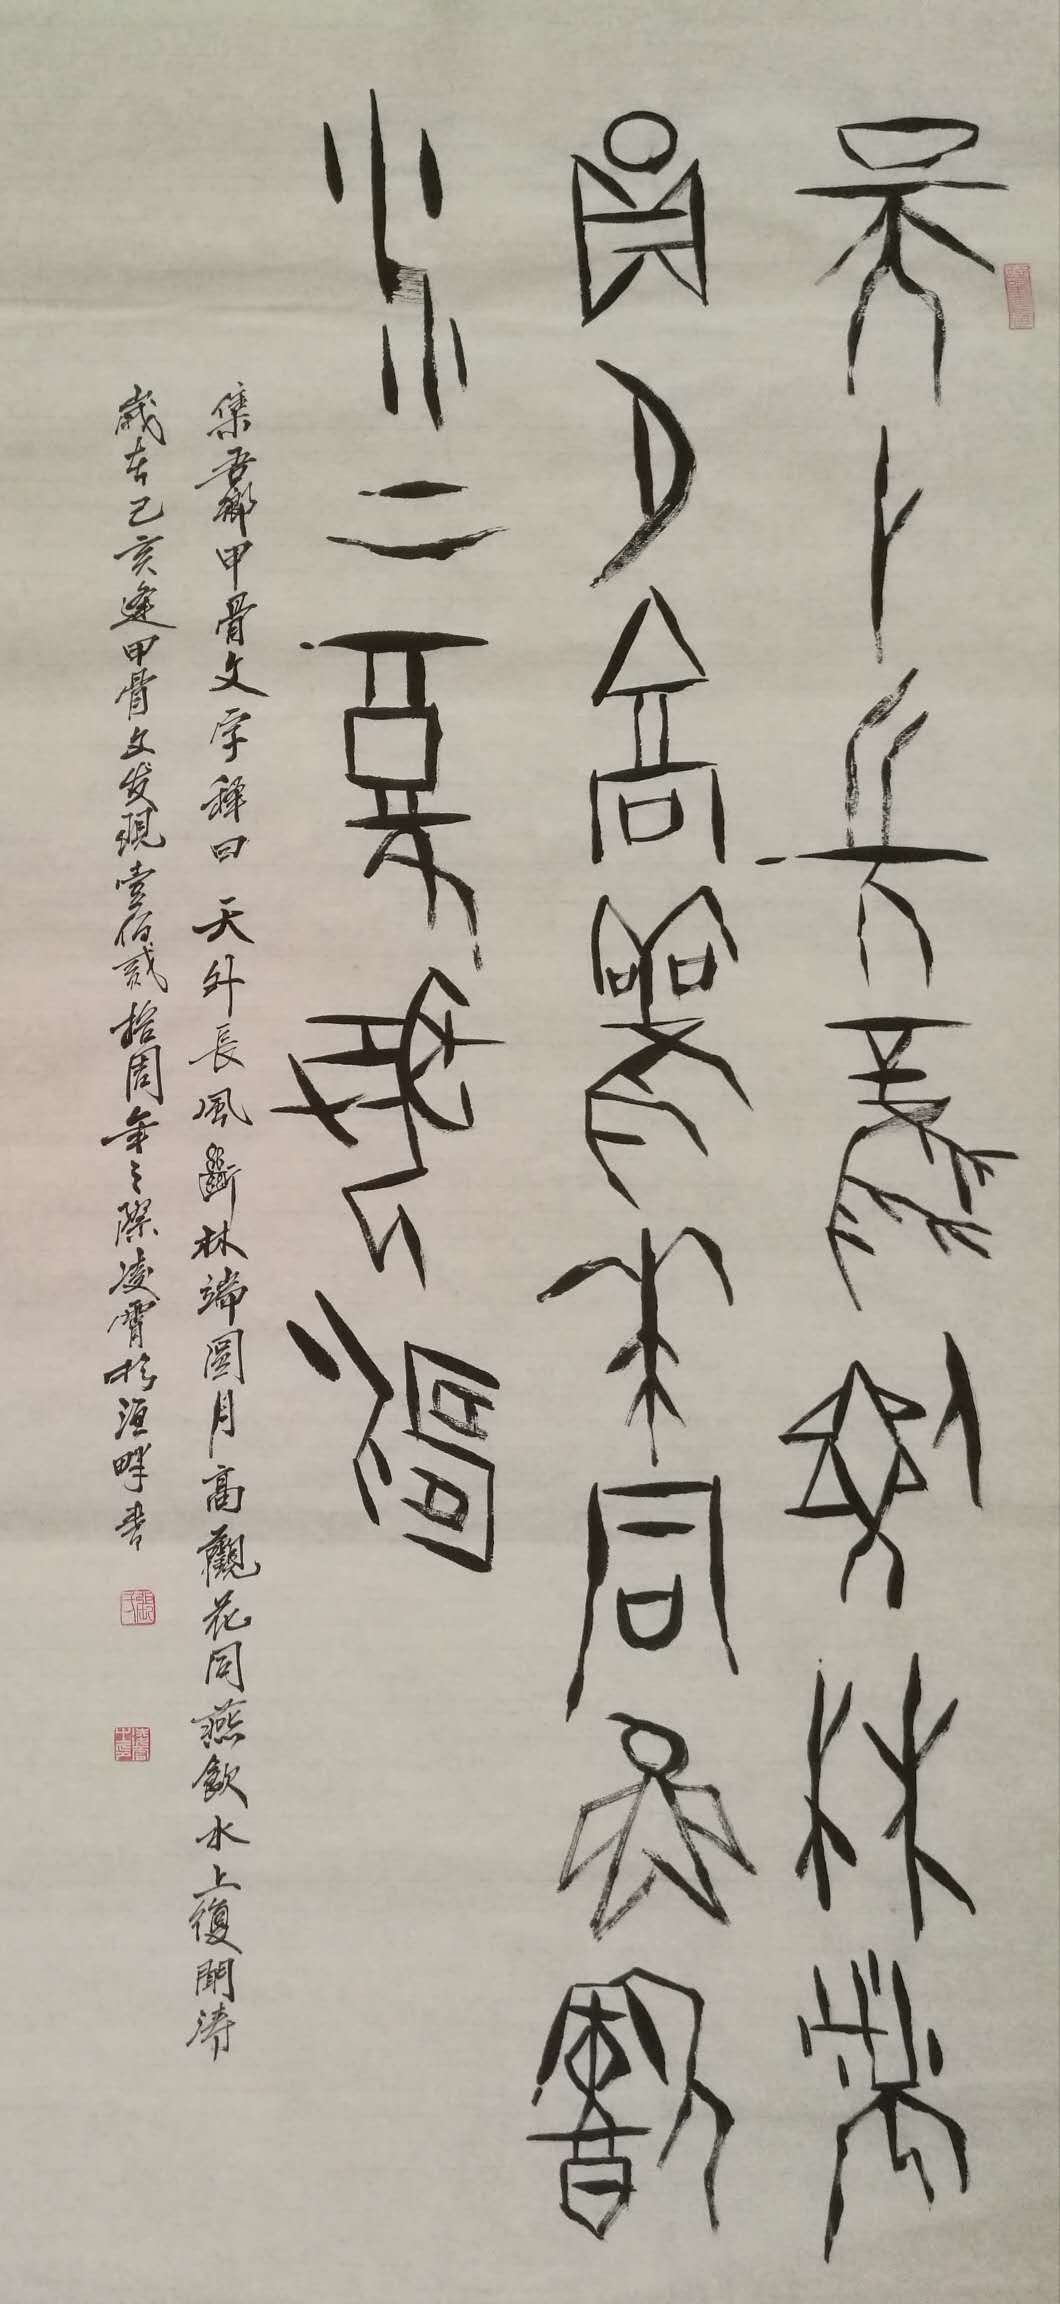 天外長風斷林端
圓月高觀花同燕飲
水上復聞濤
集吾鄉甲骨文字釋曰 天外長風斷林端圓月高觀花同燕飲水上復聞濤
歲在己亥逢甲骨文发現壹佰贰拾周年之際凌霄於洹畔書